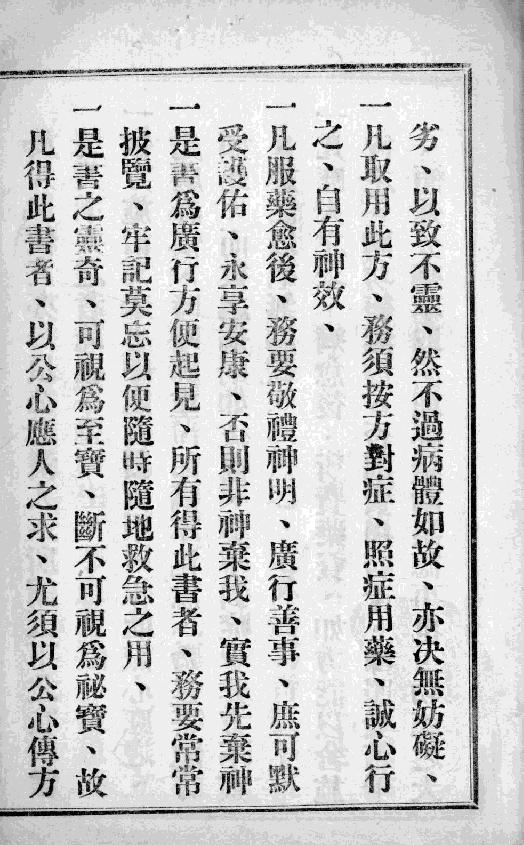 劣、以致不靈、然不過病體如故、亦决無妨礙、
一凡取用此方、務須按方對症、照症用藥、誠心行
之、自有神效、
一凡服藥愈後、務要敬禮神明、廣行善事、庶可默
受護佑、永享安康、否則非神棄我、實我先棄神
一是書爲廣行方便起見、所有得此書者、務要常常
披覽、牢記莫忘以便隨時隨地救急之用、
一是書之靈奇、可視爲至寶、斷不可視爲祕寶、故
凡得此書者、以公心應人之求、尤須以公心傳方